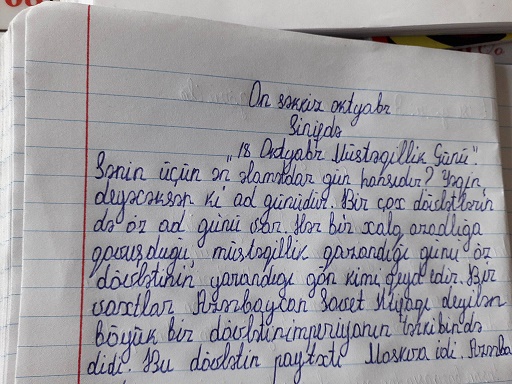 On səkkiz oktyabr
Sinifdə
"18 Oktyabr Müstəqillik Günü".
Sənin üçün ən əlamətdar gün hansıdır? Yəqin,
deyəcəksən ki ad günüdür. Bir çox dövlətlərin
də öz ad günü var. Hər bir xalq azadlığa
qovuşduğu, müstəqillik qazandığı günü öz
dövlətinin yarandığı gün kimi qeyd edir. Bir
vaxtlar Azərbaycan Sovet İttifaqı deyilən
böyük bir dövlətin imperiyanın tərkibində
idi. Bu dövlətin paytaxtı Moskva idi. Azərba